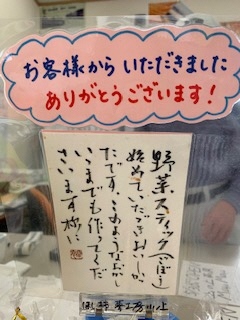 お客様から いただきました
ありがとうございます!
野菜スティック(ごぼう)
始めていただきおいしか
たです、このようなおかし
いつまでも作ってくだ
さいます様に